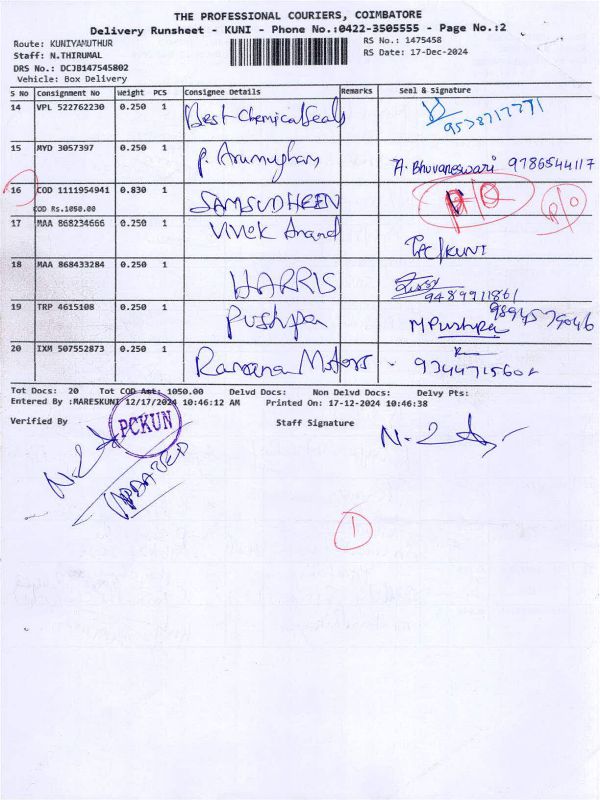 THE PROFESSIONAL COURIERS, COIMBATORE
Delivery Runsheet - KUNI - Phone No.:0422-3505555 - Page No.:2
Route: KUNIYAMUTHUR RS No.: 1475458
Staff: N.THIRUMAL RS Date: 17-Dec-2024
DRS No.: DCJB147545802
Vehicle: Box Delivery
S No Consignment No Weight PCS Consignee Details Remarks Seal & Signature
14 VPL 522762230 0.250 1 Best Chemical Seals
15 MYD 3057397 0.250 1 P. Arumugham A. Bhuvaneswari 9786544117
16 COD 1111954941 0.830 1 SAMSUDHEEN P/O P/O
COD Rs.1050.00
17 MAA 868234666 0.250 1 Vivek Anand KUNI
18 MAA 868433284 0.250 1 HARRIS 9489911861
19 TRP 4615108 0.250 1 Pushpa M Pushpa
20 IXM 507552873 0.250 1 Ramana Motors
Tot Docs: 20 Tot COD Amt: 1050.00 Delvd Docs: Non Delvd Docs: Delvy Pts:
Entered By :MARESKUNI 12/17/2024 10:46:12 AM Printed On: 17-12-2024 10:46:38
Verified By Staff Signature
PCKUN
UPDATED
1